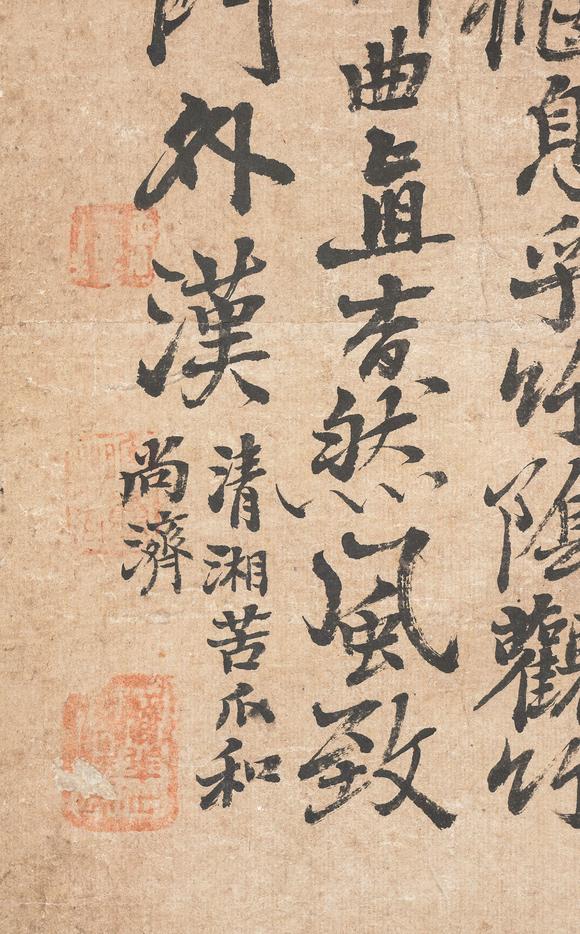 息乎竹陰觀竹
曲直杳然風致
門外漢
清湘苦瓜和
尚濟